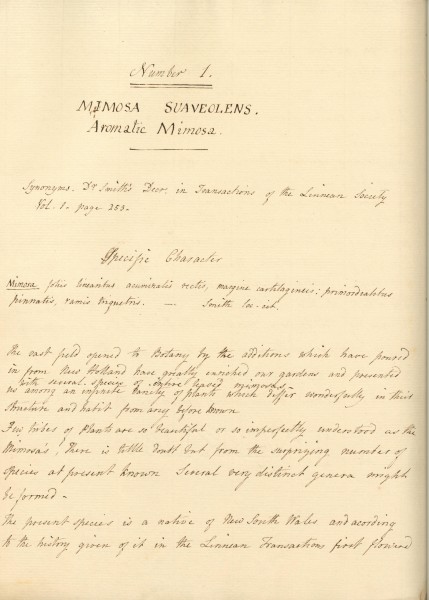 Number 1.
MIMOSA SUAVEOLENS.
Aromatic Mimosa.
Synonyms. Dr Smith's Descr. in Transactions of the Linnean Society
Vol. 1. page 253.
Specific Character
Mimosa, foliis linearibus acuminatis rectis, margine cartilagineis: primordealibus
pinnatis, ramis triquetris. — Smith loc. cit.
The vast field opened to Botany by the additions which have poured
in from New Holland have greatly enriched our gardens and presented
with several species of entire leaved mimosas
us among an infinite variety of plants which differ wonderfully in their
structure and habit from any before known
Few tribes of Plants are so beautiful or so imperfectly understood as the
Mimosa's. There is little doubt but from the surprizing number of
species at present known Several very distinct genera might
be formed -
The present species is a native of New South Wales and acording
to the history given of it in the Linnean Transactions first flowered